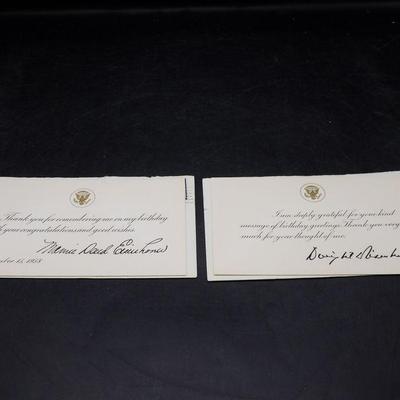 Thank you for remembering me on my birthday
your congratulations and good wishes.
Mamie Doud Eisenhower
15, 1958
I am deeply grateful for your kind
message of birthday greetings. Thank you very
much for your thought of me.
Dwight D Eisenh